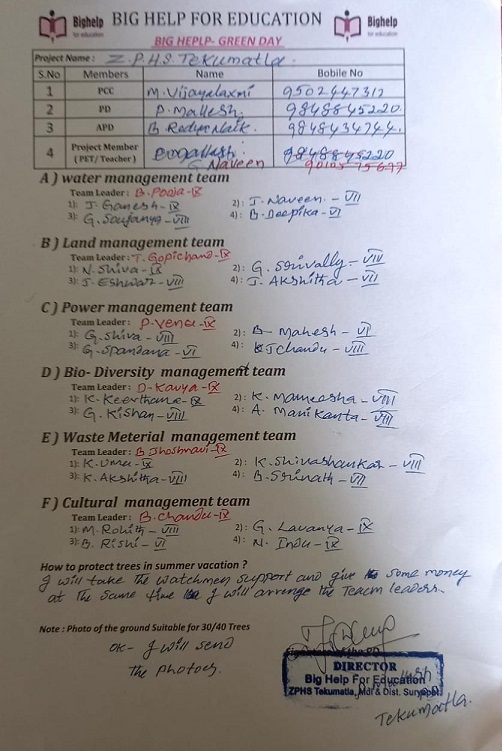 Bighelp for education BIG HELP FOR EDUCATION Bighelp for education
BIG HEPLP- GREEN DAY
Project Name : Z.P.H.S Tekumatla.
S.No Members Name Bobile No
1 PCC M. Vijayalaxmi 9502447312
2 PD P. Mallesh. 9848845220.
3 APD 9848434744.
4 Project Member ( PET/ Teacher ) G. Naveen 9848845220
A ) water management team
Team Leader : B. Pooja - IX
1): J. Ganesh - IX 2): J. Naveen. - VII
3): G. Soujanya - VIII 4): B. Deepika - VI
B ) Land management team
Team Leader : T. Gopichand - IX
1): N. Shiva - IX 2): G. Srivally - VIII
3): J. Eshwar - VIII 4): J. Akshitha - VII
C ) Power management team
Team Leader : P. Venu - IX
1): G. Shiva - VIII 2): B. Mahesh - VI
3): G. Spandana - VI 4): J Chandu - VIII
D ) Bio- Diversity management team
Team Leader : D. Kavya - IX
1): K. Keerthana - IX 2): K. Maneesha - VIII
3): G. Kishan - VIII 4): A. Manikanta - VIII
E ) Waste Meterial management team
Team Leader : B Jhoshnavi - IX
1): K. Uma - IX 2): K. Shivashankar - VIII
3): K. Akshitha - VII 4): B. Srinath - VII
F ) Cultural management team
Team Leader : B. Chandu - IX
1): M. Rohith - VIII 2): G. Lavanya - IX
3): B. Rishi - VI 4): N. Indu - IX
How to protect trees in summer vacation ?
I will take the watchmen support and give some money
at the same time I will arrange the Team leaders.
Note : Photo of the ground Suitable for 30/40 Trees
OK - I will send
the photos.
DIRECTOR
Big Help For Education
ZPHS Tekumatla, Mdl & Dist. Suryapet
Tekumatla.